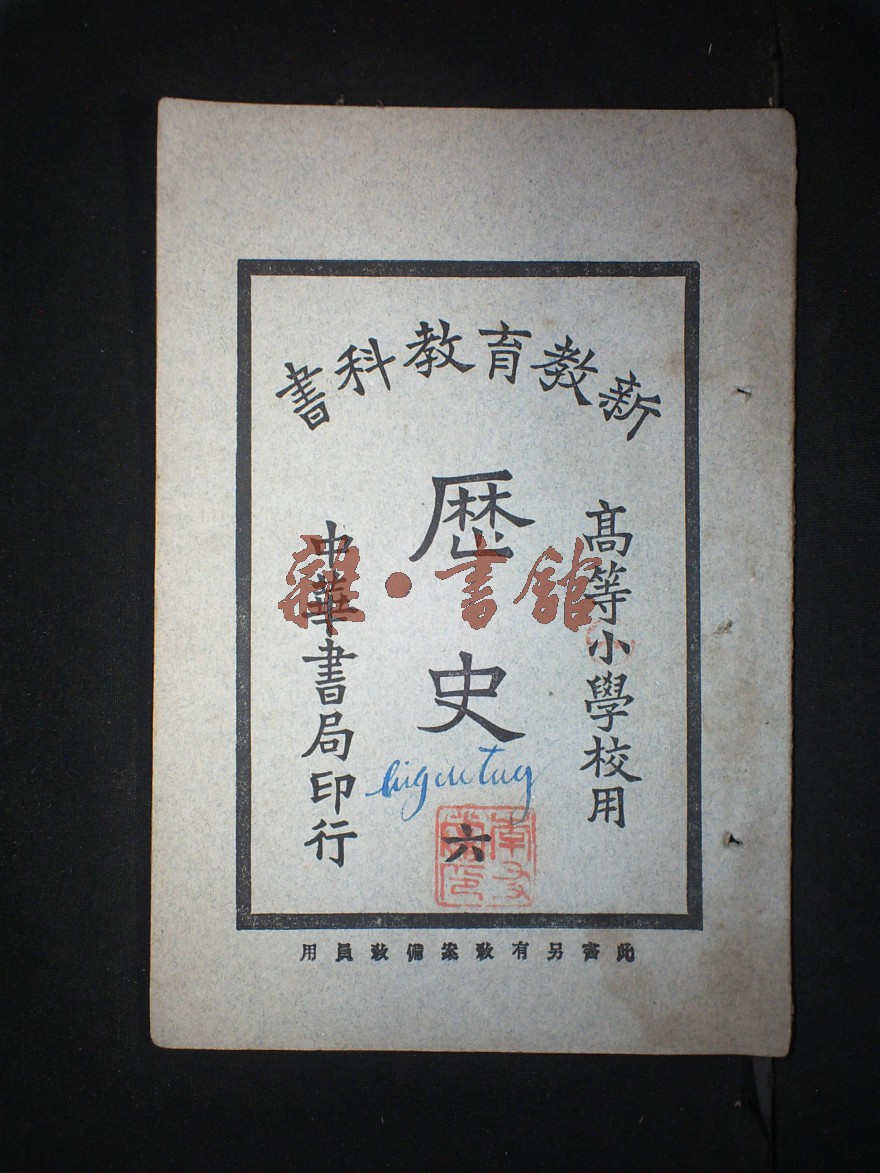 新教育教科書
高等小學校用
歷史
六
中華書局印行
雜·書館
此書另有敎案備敎員用